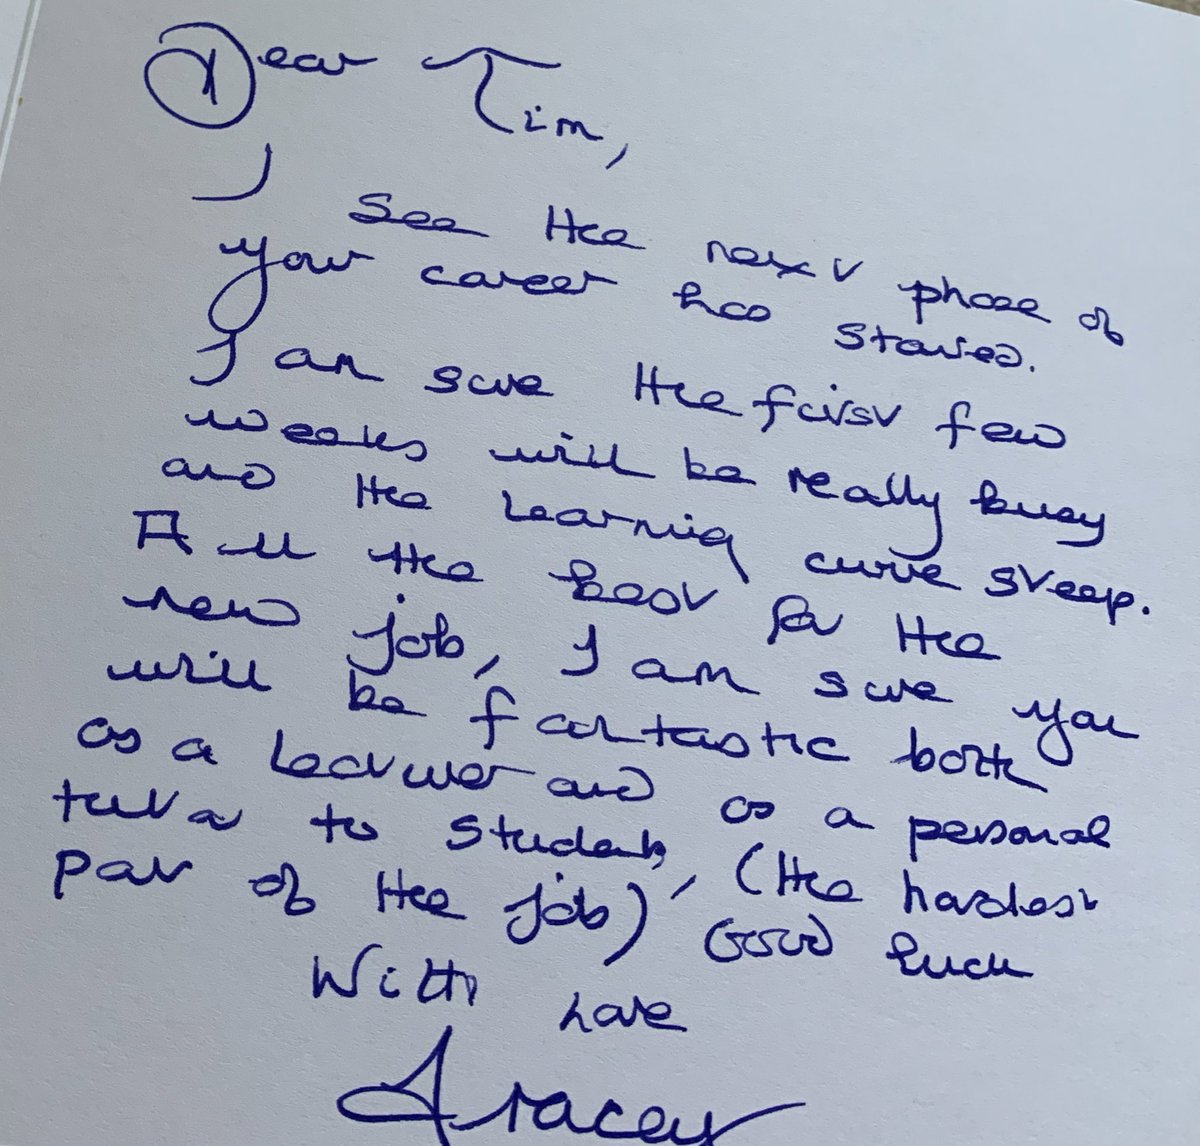 Dear Tim,
I see the next phase of
your career has started.
I am sure the first few
weeks will be really busy
and the learning curve steep.
All the best for the
new job, I am sure you
will be fantastic both
as a lecturer and as a personal
tutor to students, (the hardest
part of the job) Good luck
With love
Tracey